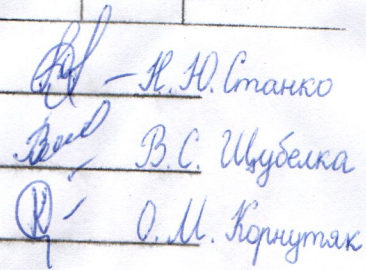 – Н. Ю. Станко
В. С. Щубелка
О. М. Корнутяк